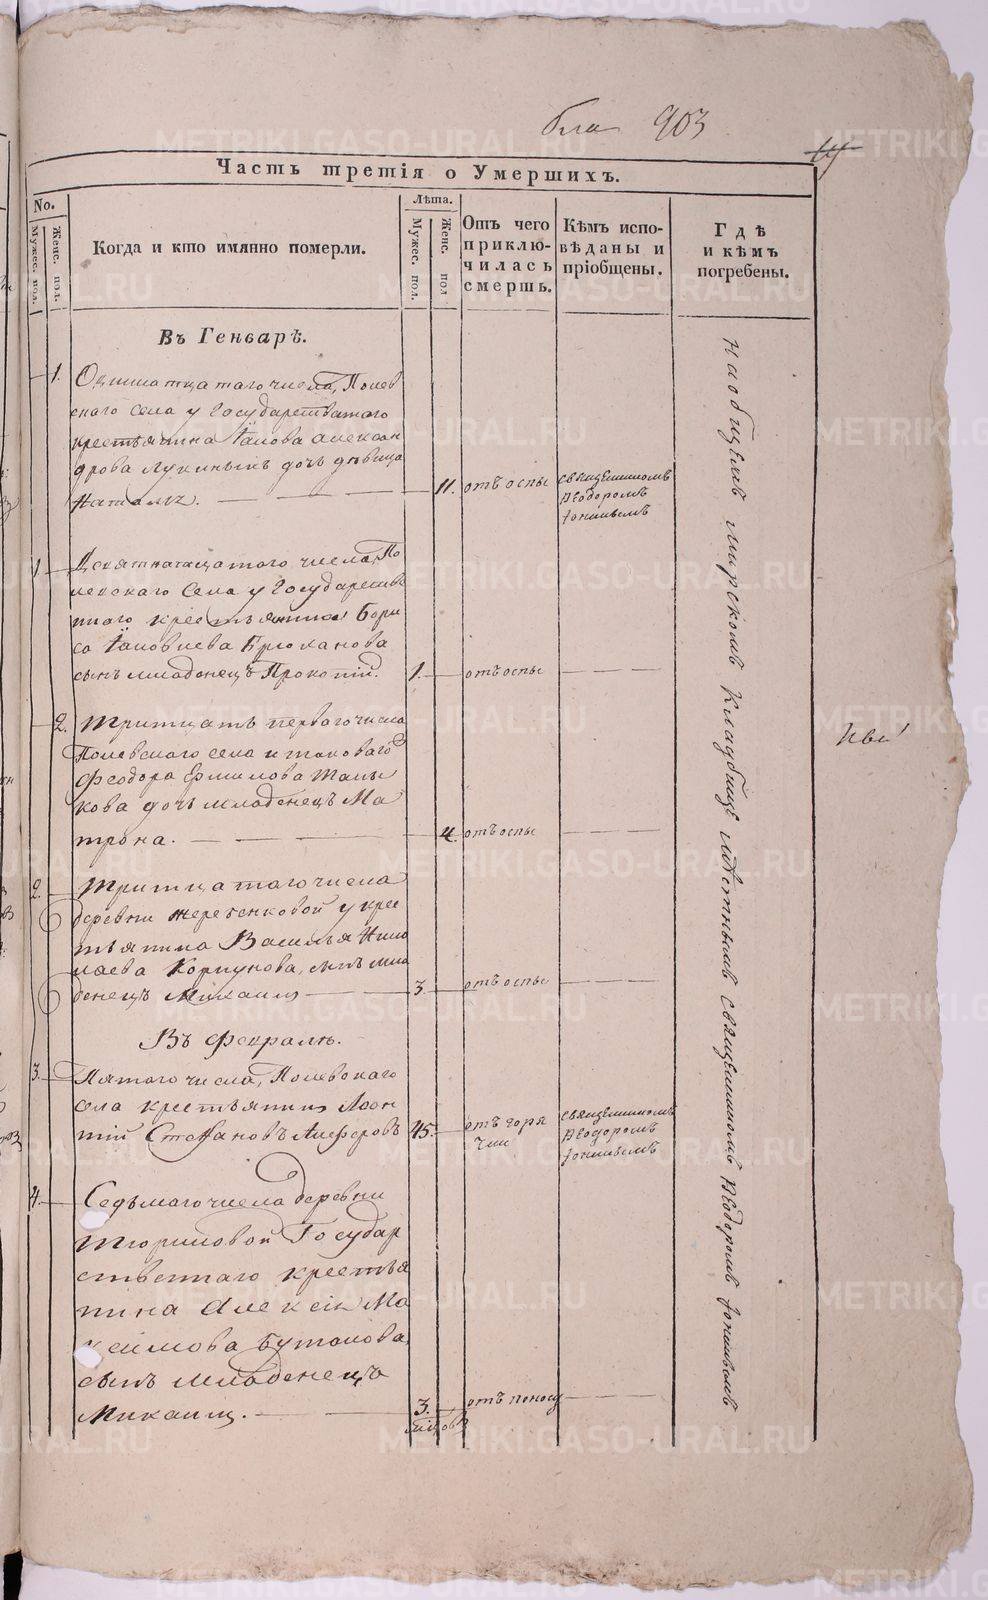 903
Часть третія о Умершихъ.
No.
Мужес. пол.
Женс. пол.
Когда и кто имянно померли.
Лѣта.
Мужес. пол.
Женс. пол
Отъ чего
приклю-
чилась
смерть.
Кѣмъ испо-
вѣданы и
пріобщены.
Гдѣ
и кѣмъ
погребены.
Въ Генварѣ.
1.
числа, Полев
скаго села у Государственнаго
крестьянина Іакова Алексан
дрова дочь дѣвица
Наталья.
11.
отъ оспы
священникомъ
Ѳеодоромъ
1
Девятнатцатаго числа, По
левскаго Села у Государстве
ннаго крестьянина Бори
са Іаковлева Брюханова
сынъ младенецъ Прокопій.
1.
отъ оспы
2.
Тритцать перваго числа
Полевскаго села у таковаго
Феодора Ермилова
кова дочь младенецъ Ма
трона.
4.
отъ оспы
2.
Тритцатаго числа
деревни у крес
тьянина Василья Нико
лаева Коршунова, сынъ мла
денецъ Михаилъ
3.
отъ оспы
Въ Февралѣ.
3.
Пятаго числа, Полевскаго
села крестьянинъ Леон
тій Стефановъ
45.
отъ горя
чки
священникомъ
Ѳеодоромъ
4.
Седьмаго числа деревни
Государ
ственнаго крестья
нина Алексѣя Ма
ксимова
сынъ младенецъ
Михаилъ.
3.
отъ поносу
на общемъ мирскомъ кладбищѣ мѣстнымъ священникомъ Ѳеодоромъ
METRIKI.GASO-URAL.RU